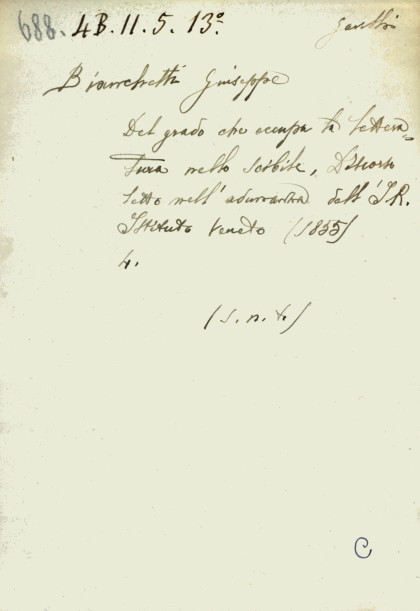 688. 4B. 11. 5. 13º
Bianchetti Giuseppe
Del grado che occupa la Lettera=
tura nello scibile, Discorso
letto nell'adunanza dell'I.R.
Istituto Veneto (1855)
4.
(s. n. t.)
C